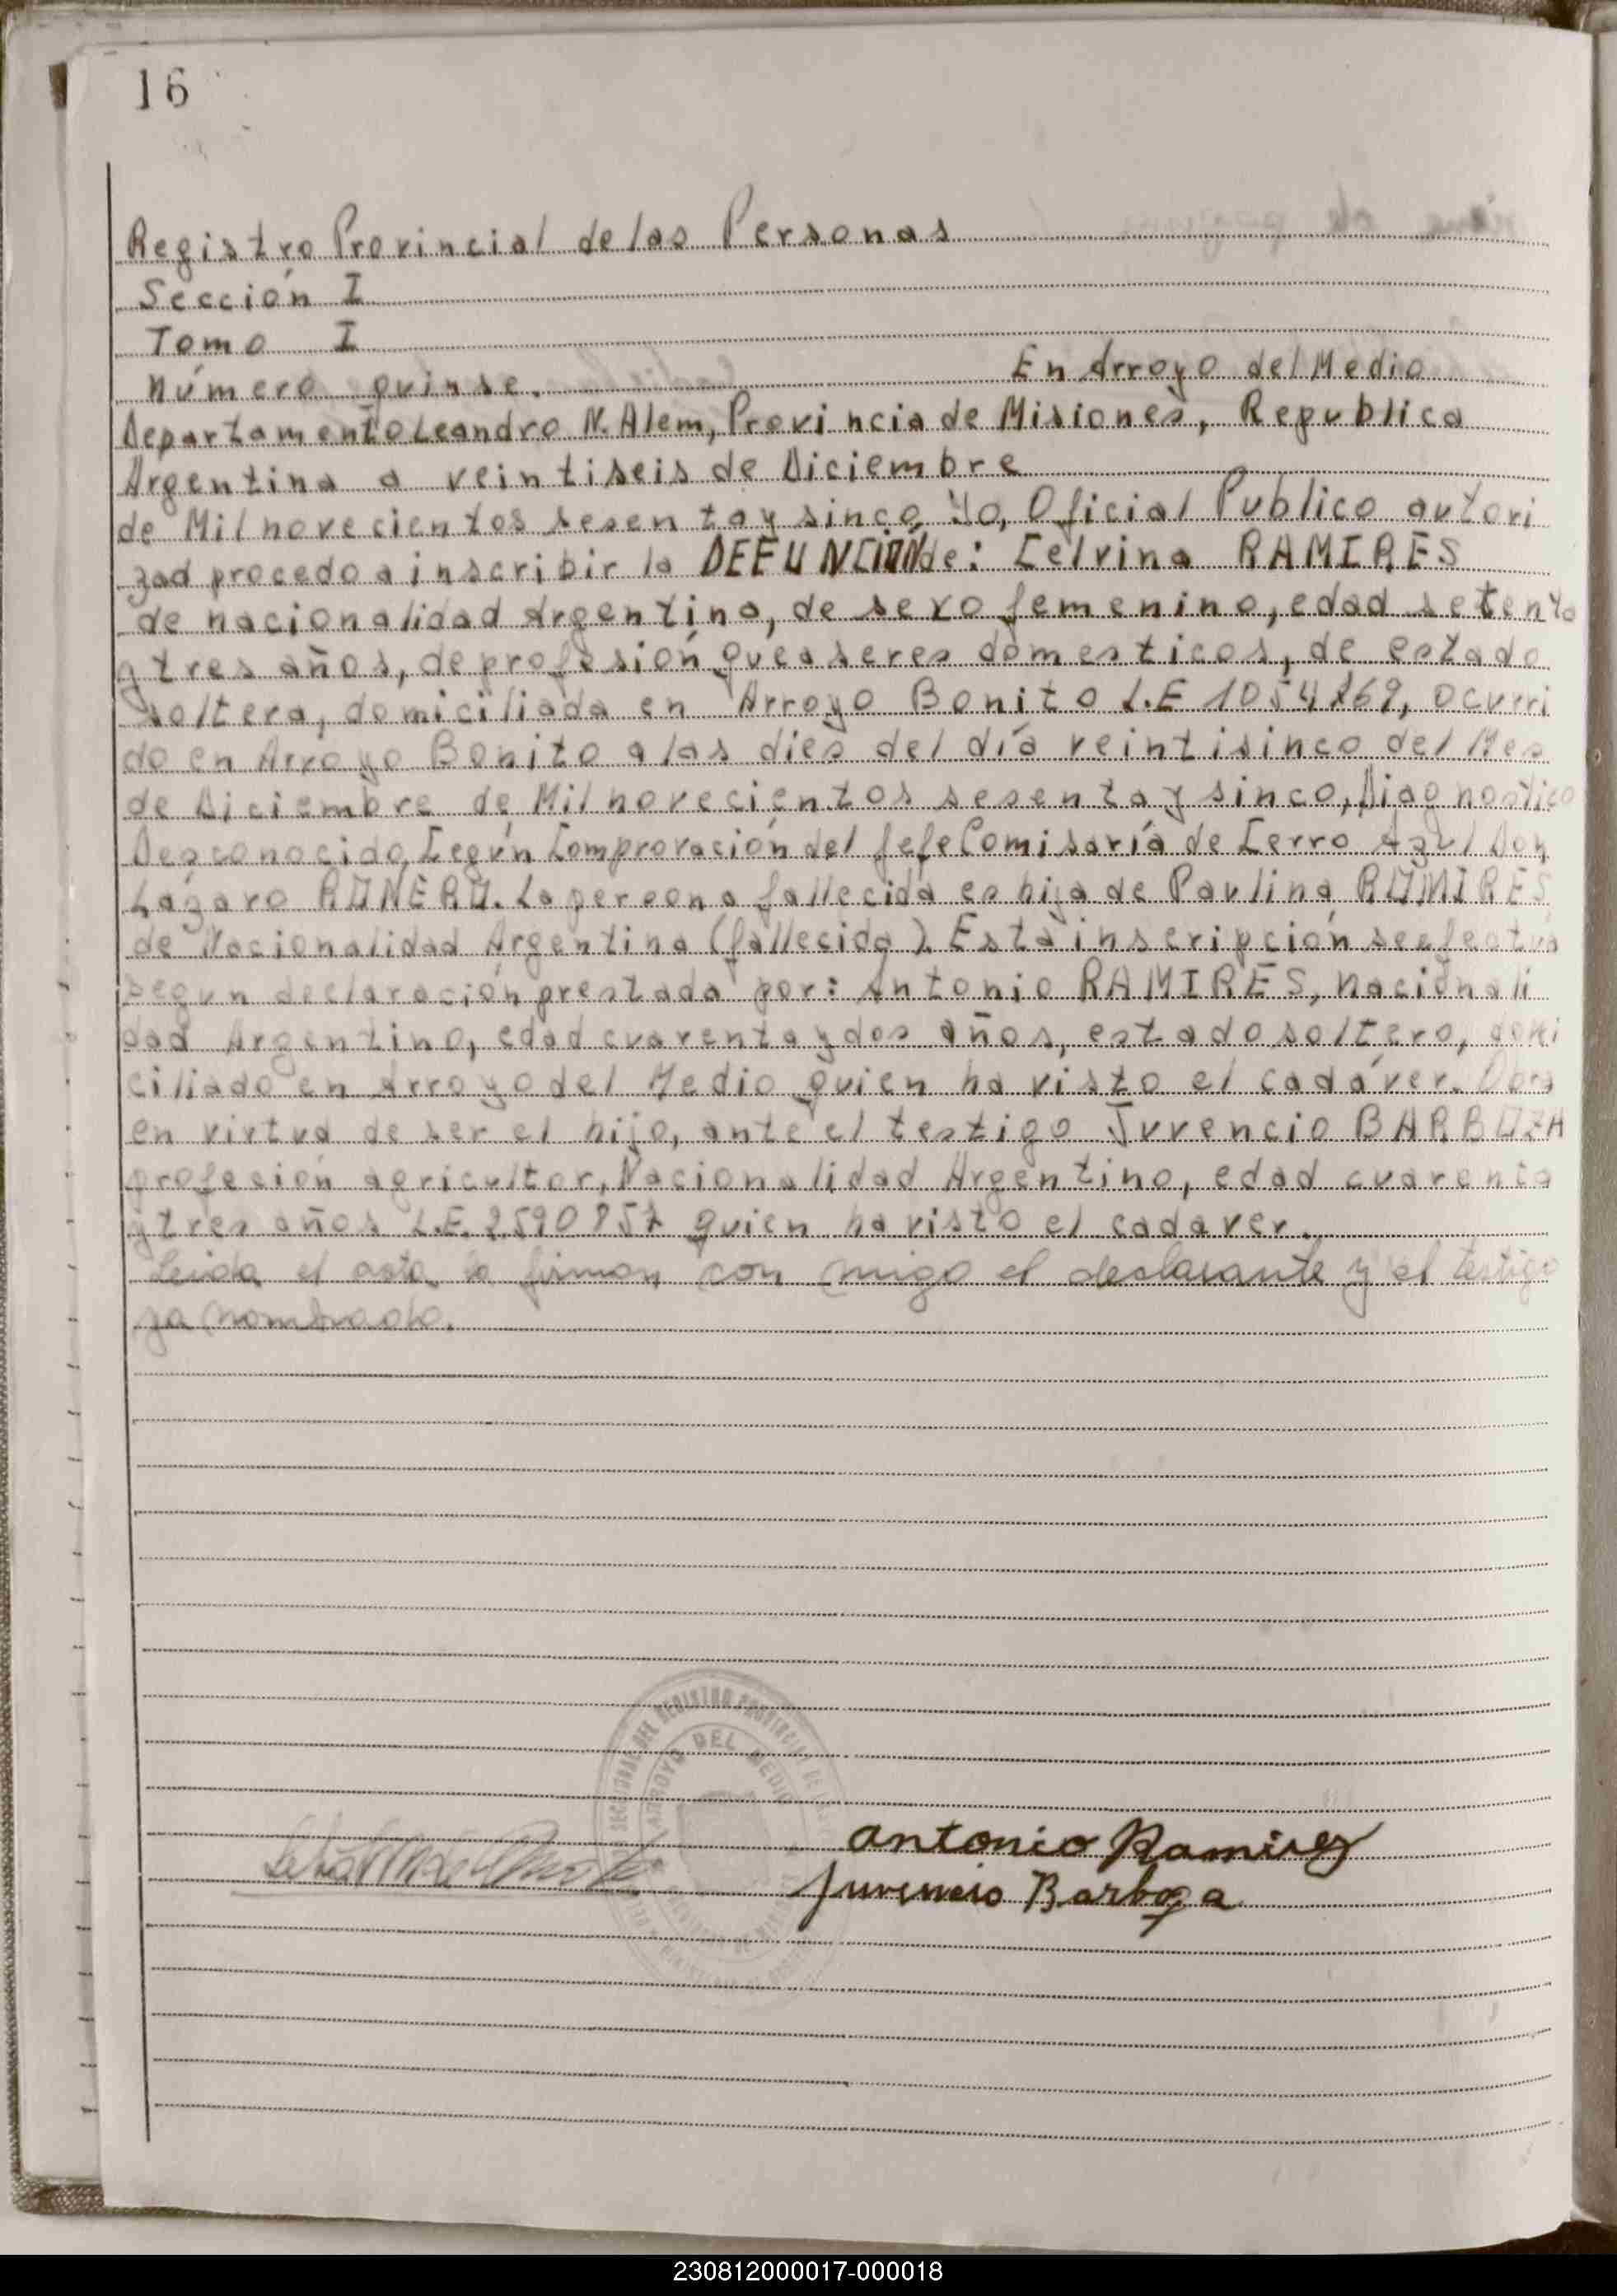 16
Registro Provincial de las Personas
Sección I
Tomo I
Número quinse. En Arroyo del Medio
Departamento Leandro N. Alem, Provincia de Misiones, Republica
Argentina a veintiseis de Diciembre
de Mil novecientos sesenta y sinco Yo, Oficial Publico autori
zad procedo a inscribir la DEFUNCIÓN de: Celvina RAMIRES
de nacionalidad Argentina, de sexo femenino, edad setenta
y tres años, de profesión queaseres domesticos, de estado
soltera, domiciliada en Arroyo Bonito L.E 1054269, ocurri
do en Arroyo Bonito a las dies del día veintisinco del Mes
de Diciembre de Mil novecientos sesenta y sinco, Diagnostico
Desconocido, Cegún Comprovación del Jefe Comisaría de Cerro Azul Don
Lázaro ROMERO. La persona fallecida es hija de Paulina RAMIRES
de Nacionalidad Argentina (fallecida). Esta inscripción se efectua
segun declaración prestada por: Antonio RAMIRES, Nacionali
dad Argentino, edad cuarenta y dos años, estado soltero, domi
ciliado en Arroyo del Medio quien ha visto el cadáver. Obra
en virtud de ser el hijo, ante el testigo Juvencio BARBOZA
profesión agricultor, Nacionalidad Argentino, edad cuarenta
y tres años L.E. 2590857 quien ha visto el cadaver.
Leida el acta la firman con migo el declarante y el testigo
ya nombrado.
DEL REGISTRO PROVINCIAL DE
ARROYO DEL MEDIO
Antonio Ramires
Juvencio Barboza
230812000017-000018